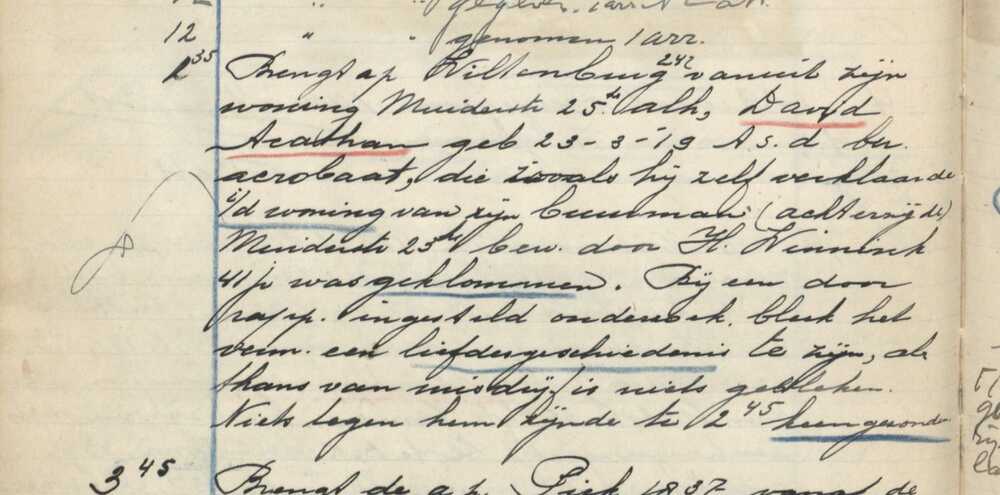 12 " " genomen 1 arr.
1 35 Brengt ap Wiltenburg 242 vanuit zijn
woning Muiderstr 25 hs alh, David
Acathan geb 23-3-'19 A s.d ber.
acrobaat, die zooals hij zelf verklaarde
i/d woning van zijn buurman (achterzijde)
Muiderstr 23 hs bew. door H. Winnink
41 j. was geklommen. Bij een door
rapp. ingesteld onderzoek. bleek het
verm. een liefdesgeschiedenis te zijn, al
thans van misdrijf is niets gebleken.
Niets tegen hem zijnde te 2 45 heengezonden
3 45 Brengt de a.p. 1837 vanaf de